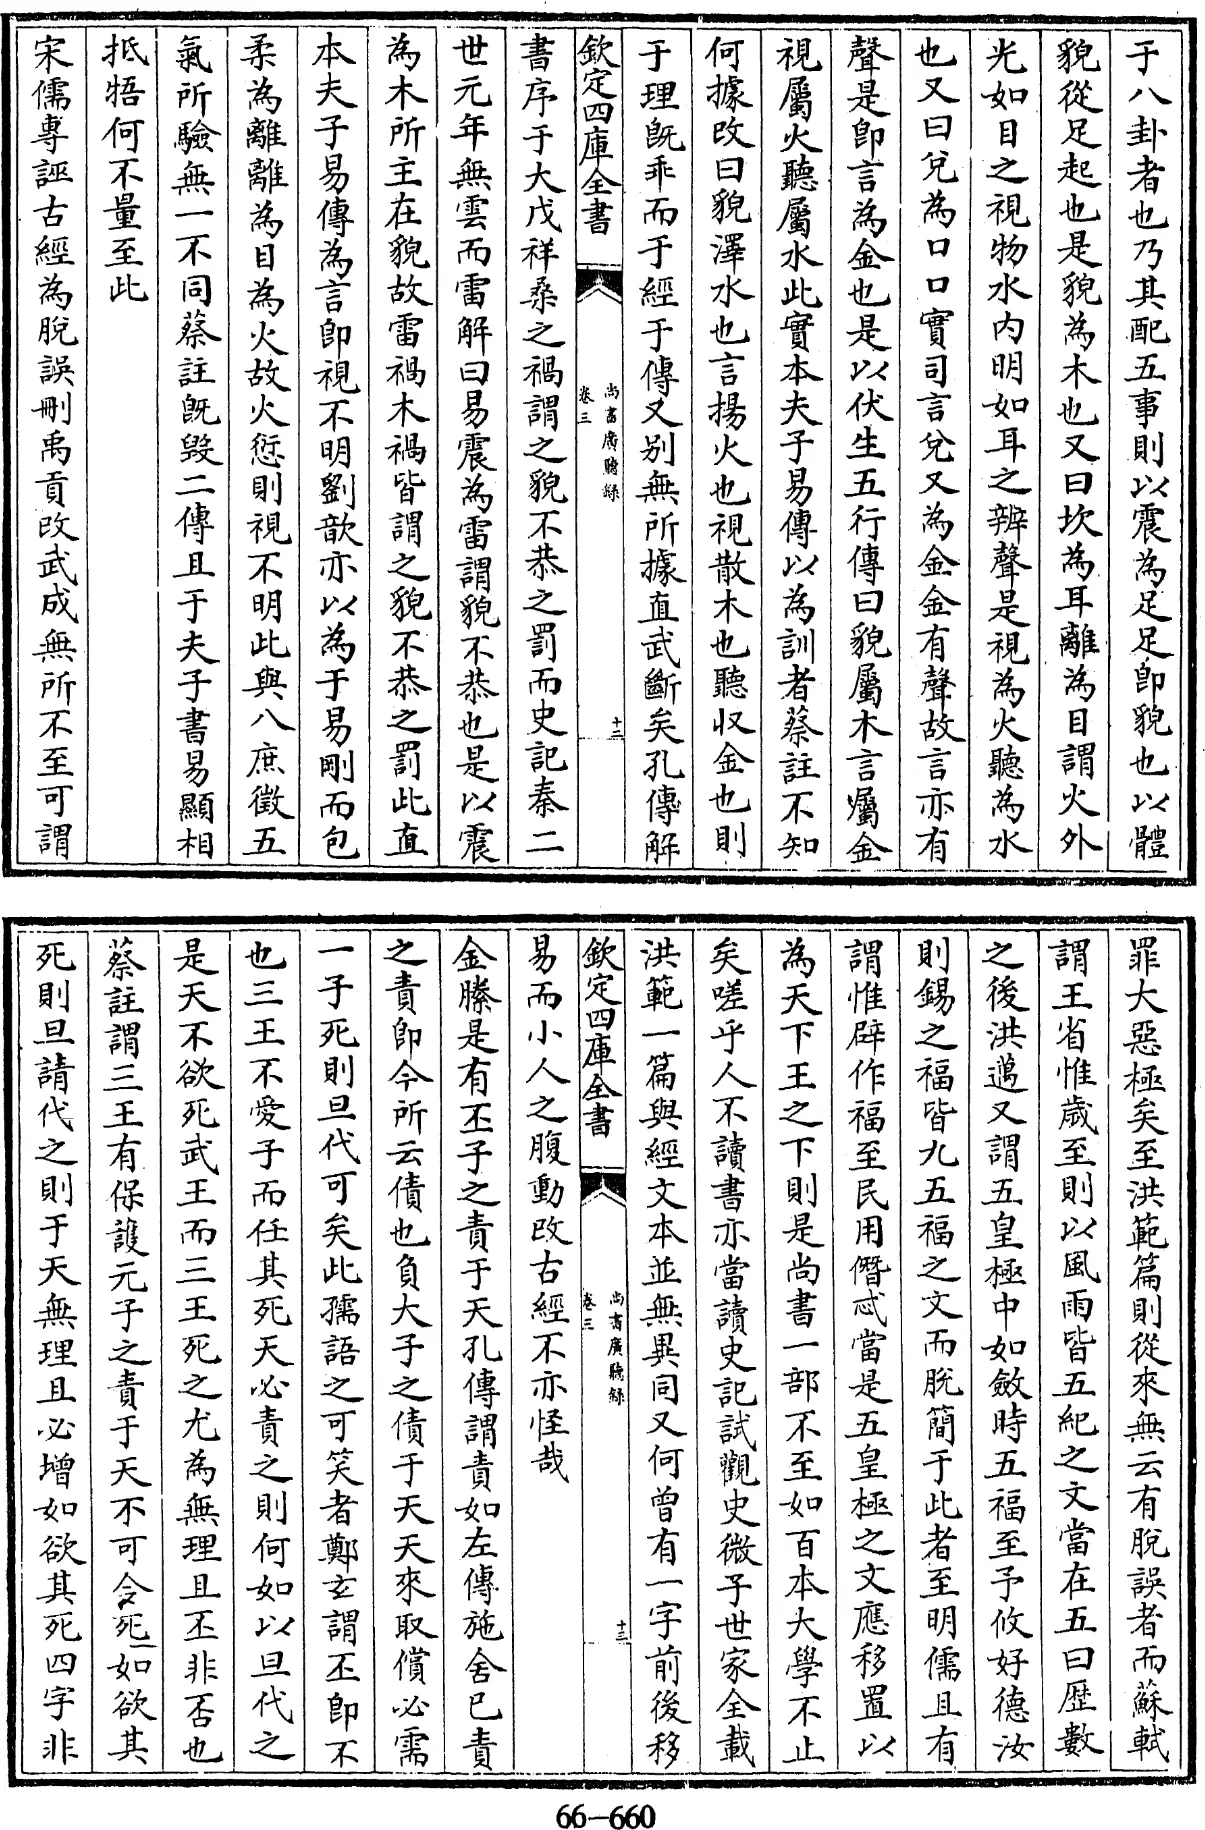 于八卦者也乃其配五事則以震為足足即貌也以體
貌從足起也是貌為木也又曰坎為耳離為目謂火外
光如目之視物水内明如耳之辨聲是視為火聽為水
也又曰兌為口口實司言兌又為金金有聲故言亦有
聲是即言為金也是以伏生五行傳曰貌屬木言屬金
視屬火聽屬水此實本夫子易傳以為訓者蔡註不知
何據改曰貌澤水也言揚火也視散木也聽收金也則
于理既乖而于經于傳又别無所據直武斷矣孔傳解
欽定四庫全書
尚書廣聽録
卷三
十三
書序于大戊祥桑之禍謂之貌不恭之罰而史記秦二
世元年無雲而雷解曰易震為雷謂貌不恭也是以震
為木所主在貌故雷禍木禍皆謂之貌不恭之罰此直
本夫子易傳為言即視不明劉歆亦以為于易剛而包
柔為離離為目為火故火愆則視不明此與八庶徵五
氣所驗無一不同蔡註既毀二傳且于夫子書易顯相
抵牾何不量至此
宋儒專誣古經為脫誤刪禹貢改武成無所不至可謂
罪大惡極矣至洪範篇則從來無云有脫誤者而蘇軾
謂王省惟歲至則以風雨皆五紀之文當在五曰歷數
之後洪邁又謂五皇極中如斂時五福至予攸好德汝
則錫之福皆九五福之文而脫簡于此者至明儒且有
謂惟辟作福至民用僭忒當是五皇極之文應移置以
為天下王之下則是尚書一部不至如百本大學不止
矣嗟乎人不讀書亦當讀史記試觀史微子世家全載
洪範一篇與經文本並無異同又何曾有一字前後移
欽定四庫全書
尚書廣聽録
卷三
十三
易而小人之腹動改古經不亦怪哉
金縢是有丕子之責于天孔傳謂責如左傳施舍已責
之責即今所云債也負大子之債于天天來取償必需
一子死則旦代可矣此孺語之可笑者鄭玄謂丕即不
也三王不愛子而任其死天必責之則何如以旦代之
是天不欲死武王而三王死之尤為無理且丕非否也
蔡註謂三王有保護元子之責于天不可令死如欲其
死則旦請代之則于天無理且必增如欲其死四字非
66-660